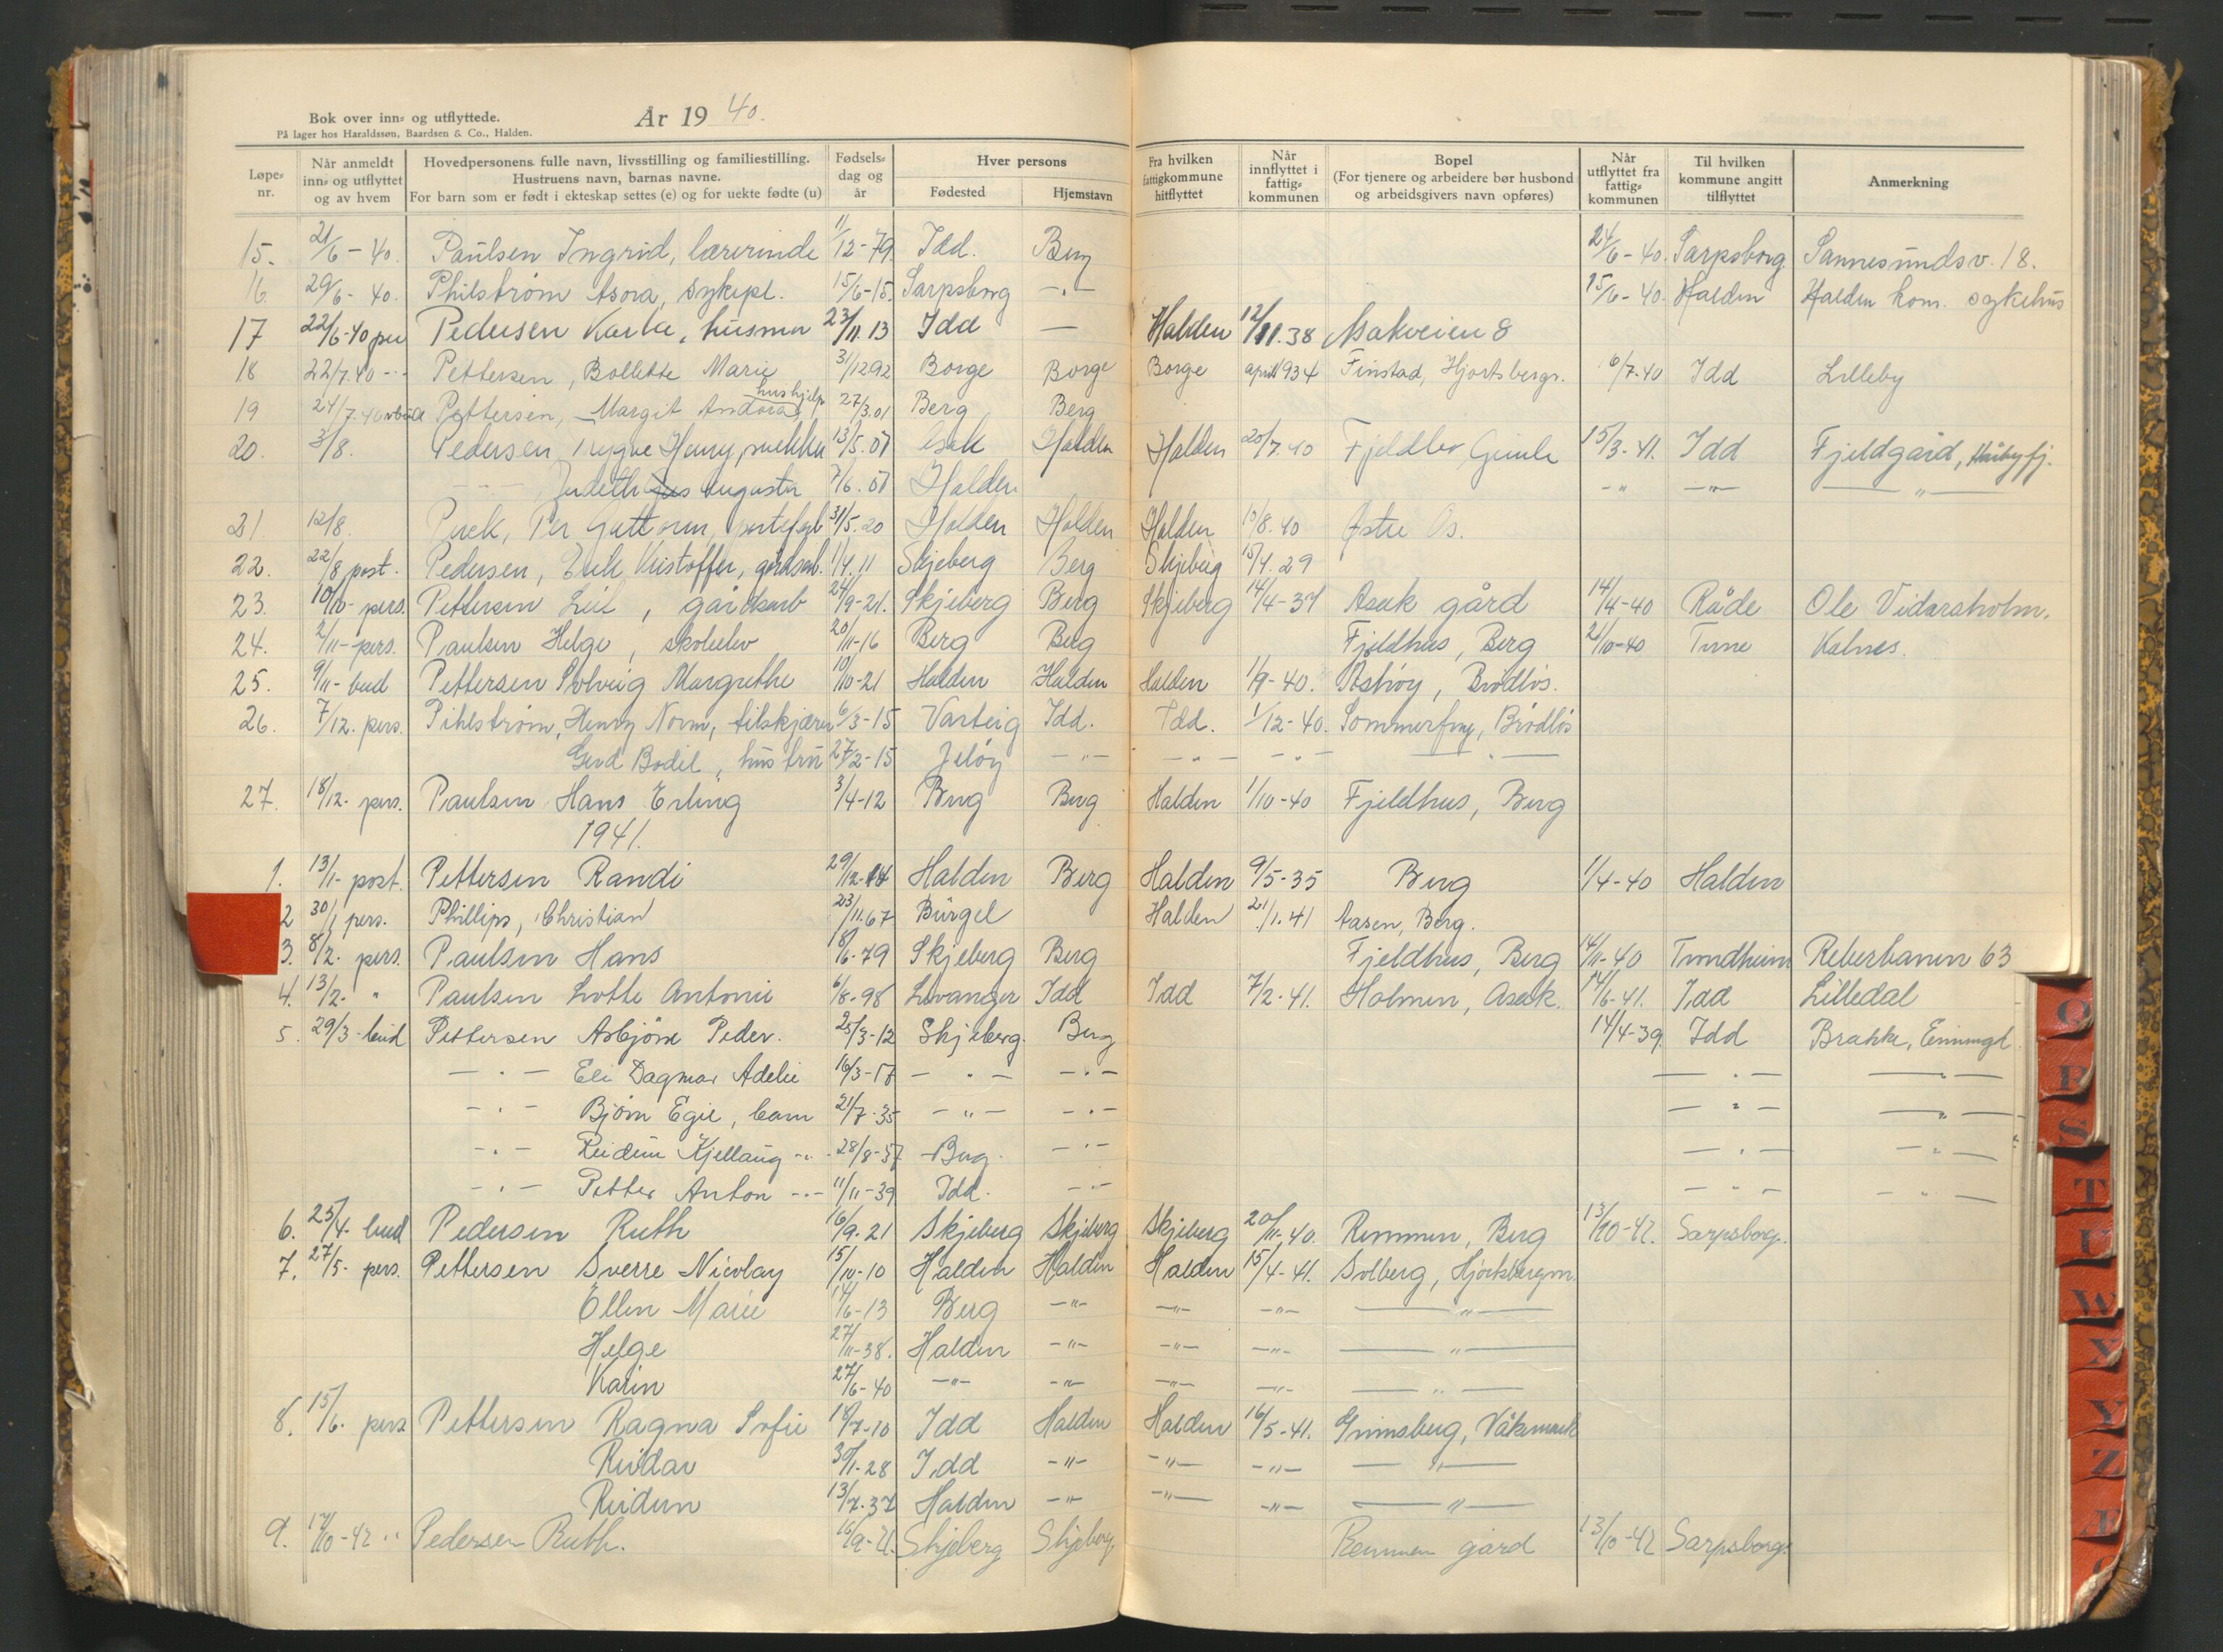 Bok over inn- og utflyttede.
På lager hos Haraldssøn, Baardsen & Co., Halden.
År 1940.
Løpe-nr. Når anmeldt inn- og utflyttet og av hvem Hovedpersonens fulle navn, livsstilling og familiestilling. Hustruens navn, barnas navne. For barn som er født i ekteskap settes (e) og for uekte fødte (u) Fødsels-dag og år Hver persons Fødested Hjemstavn Fra hvilken fattigkommune hitflyttet Når innflyttet i fattig-kommunen Bopel (For tjenere og arbeidere bør husbond og arbeidsgivers navn opføres) Når utflyttet fra fattig-kommunen Til hvilken kommune angitt tilflyttet Anmerkning
15. 21/6-40. Paulsen Ingrid, lærerinde 11/12-79. Idd. Berg 24/6-40. Sarpsborg Sannesundsv. 18.
16. 29/6-40. Philstrøm Asora, sykepl. 15/6-15. Sarpsborg -"- 15/6-40. Halden Halden kom. sykehus
17 22/6-40 per Pedersen Karla, husmor 23/11.13 Idd — Halden 12/11.38 Asakveien 8
18 22/7.40 -"- Pettersen, Bollette Marie 31/12 92 Borge Borge Borge april 1934 Finstad, Hjortsbergs. 6/7-40 Idd Lilleby
19 24/7.40 Pettersen, Margit Andora, hushjelp 27/3.01 Berg Berg
20. 3/8. Pedersen, Trygve Henry, 13/5.07 Asak Halden Halden 20/7.40 Fjeldbo, Gimle 15/3-41. Idd Fjeldgård,
-"- Judith Augusta 7/6.07 Halden. -"- -"- -"-
21. 12/8. Per Guttorm, 31/5.20 Halden Halden Halden 10/8.40 Østre Os.
22. 22/8 post. Pedersen, Erik Kristoffer, gårdsarb. 1/4.11 Skjeberg Berg Skjeberg 15/4.29
23. 10/10- pers. Pettersen Leif, gårdsarb 24/9-21. Skjeberg Berg Skjeberg 14/4-37 Asak gård 14/4-40 Råde Ole Vidarsholm.
24. 2/11- pers. Paulsen Helge, skoleelev 20/11-16 Berg Berg Fjeldhus, Berg 21/10-40 Tune Kalnes.
25. 9/11- bud Pettersen Solveig Margrethe 10/10-21 Halden Halden Halden 1/9-40. Astrøy, Brødløs.
26. 7/12. pers. Pihlstrøm, Henry Norm, tilskjærer 6/3-15 Varteig Idd. Idd. 1/12-40. Brødløs
Gerd Bodil, hustru 27/2-15 Jeløy -"- -"- -"- -"-
27. 18/12- pers. Paulsen Hans Erling 3/4-12 Berg Berg Halden 1/10-40 Fjeldhus, Berg
1941.
1. 13/1- post. Pettersen Randi 29/12-14 Halden Berg Halden 9/5-35 Berg 1/4-40 Halden
2 30/1 pers. Phillips, Christian 23/11.67 Bürgel Halden 21/1.41 Aasen, Berg.
3. 8/2. pers. Paulsen Hans 18/6-79 Skjeberg Berg Fjeldhus, Berg 14/11-40 Trondheim Reberbanen 63
4. 13/2- " Paulsen Lotte Antonie 6/8-98 Levanger Idd Idd 7/2-41. Holmen, Asak. 14/6-41. Idd Lilledal
5. 29/3-bud Pettersen Asbjørn Peder. 25/3-12 Skjeberg. Berg 14/4-39. Idd Brakke, Enningd.
-"- Eli Dagmar Adelie 16/3-17 -"- -"- -"- -"-
-"- Bjørn Egil, barn 21/7-35 -"- -"- -"- -"-
-"- Reidun Kjellaug -"- 28/8-37 Berg. -"- -"- -"-
-"- Petter Anton -"- 11/11-39 Idd. -"- -"- -"-
6. 25/4. bud Pedersen Ruth 16/9-21 Skjeberg Skjeberg Skjeberg 20/11-40. Remmen, Berg 13/10-42. Sarpsborg.
7. 27/5- pers. Pettersen Sverre Nicolay 15/10-10 Halden Halden Halden 15/4-41. Solberg, Hjortsbergm.
Ellen Marie 17/6-13 Berg -"- -"- -"- -"-
Helge 27/11-38. Halden -"- -"- -"- -"-
Karin 27/6-40 -"- -"- -"- -"- -"-
8. 15/6. pers Pettersen Ragna Sofie 18/7-10 Idd Halden Halden 16/5-41. Grimsberg,
Reidar 30/1-28 Idd -"- -"- -"- -"-
Reidun 13/7-37 Halden -"- -"- -"- -"-
9. 17/10-42 -"- Pedersen Ruth. 16/9-21. Skjeberg Skjeberg. Remmen gård 13/10-42 Sarpsborg.
Q
R
S
T
U
W
X
Y
Z